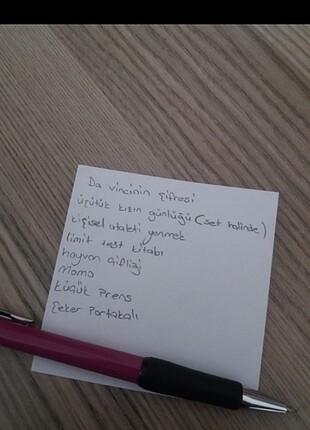 Da vincinin şifresi
üçütük kızın günlüğü (set halinde)
kişisel ataleti yenmek
limit test kitabı
hayvan çifliği
momo
küçük Prens
Şeker Portakalı